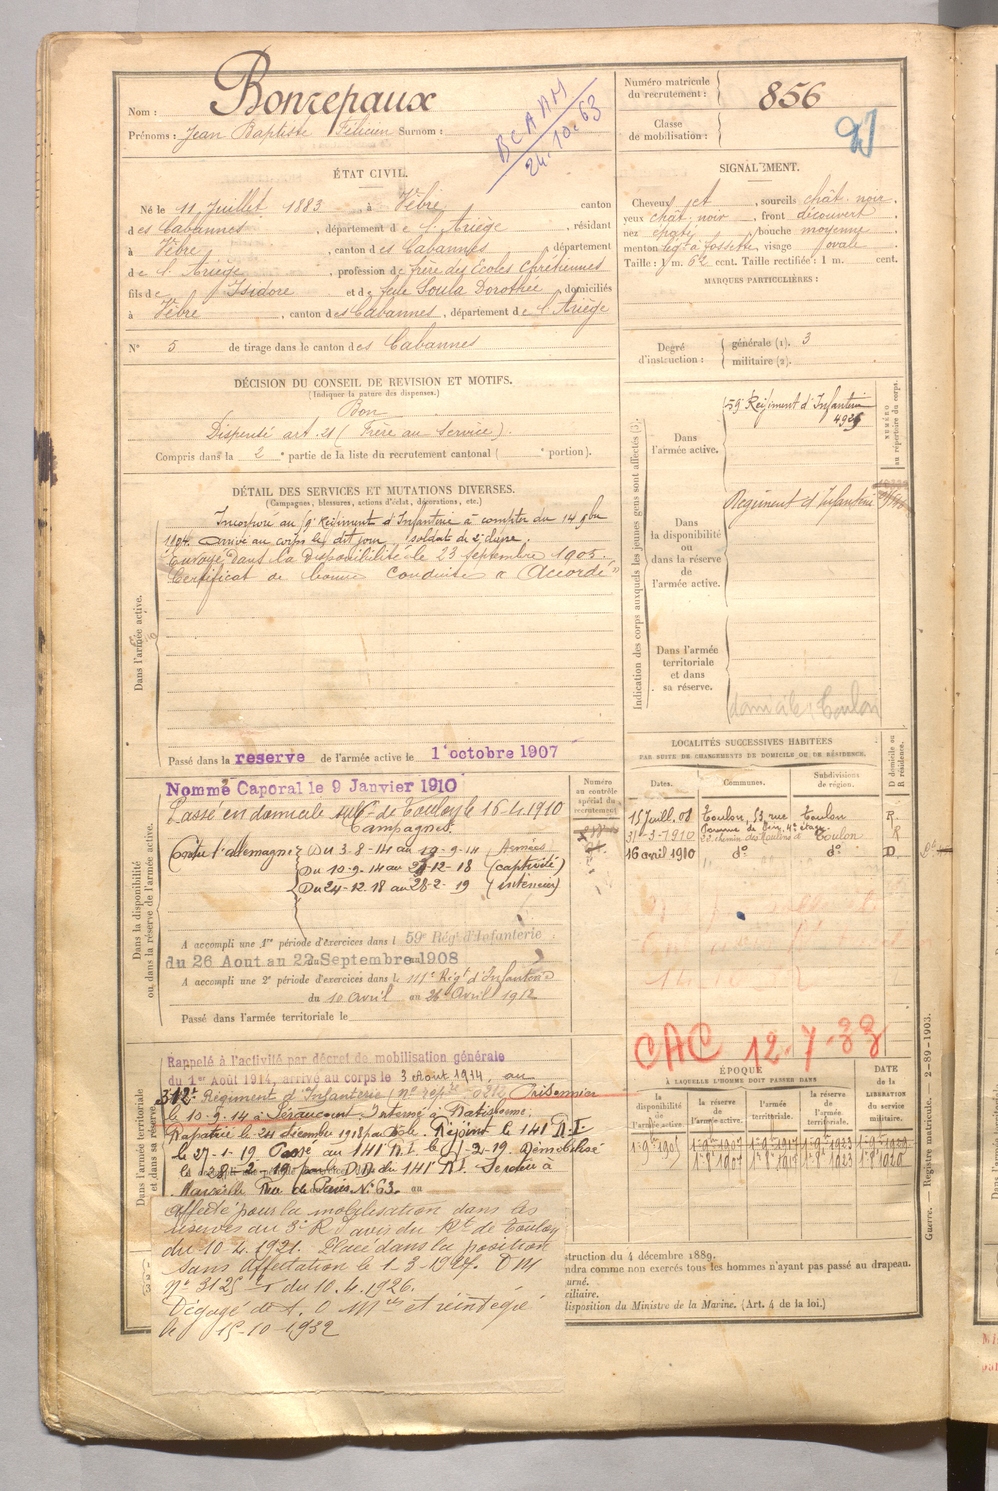 Nom : Bonrepaux
Prénoms : Jean Baptiste Félicien Surnom :
BCAAM
24.10.63
Numéro matricule
du recrutement : 856
Classe
de mobilisation :
ÉTAT CIVIL.
Né le 11 Juillet 1883, à Vèbre canton
des Cabannes, département de l'Ariège, résidant
à Vèbre, canton des Cabannes, département
de l'Ariège, profession de frère des Ecoles Chrétiennes
fils de Isidore et de feue Soula Dorothée, domiciliés
à Vèbre, canton des Cabannes, département de l'Ariège
N° 5 de tirage dans le canton des Cabannes
SIGNALEMENT.
Cheveux jct, sourcils chât. noir,
yeux chât. noir, front découvert
nez épaté, bouche moyenne
menton à fossette visage ovale
Taille : 1 m. 62 cent. Taille rectifiée : 1 m. cent.
MARQUES PARTICULIÈRES :
Degré
d'instruction :
générale (1). 3
militaire (2).
DÉCISION DU CONSEIL DE REVISION ET MOTIFS.
(Indiquer la nature des dispenses.)
Bon
Dispensé art. 21 (Frère au service).
Compris dans la 2e partie de la liste du recrutement cantonal ( e portion).
DÉTAIL DES SERVICES ET MUTATIONS DIVERSES.
(Campagnes, blessures, actions d'éclat, décorations, etc.)
Dans l'armée active.
Incorporé au 9e Régiment d'Infanterie à compter du 14 9bre
1904. Arrivé au corps le dit jour, soldat de 2e classe.
Envoyé dans la disponibilité le 23 septembre 1905.
Certificat de bonne conduite "Accordé"
Passé dans la reserve de l'armée active le 1er octobre 1907
Indication des corps auxquels les jeunes gens sont affectés (3).
NUMÉRO
au répertoire du corps.
Dans
l'armée active.
59e Régiment d'Infanterie
Dans
la disponibilité
ou
dans la réserve
de
l'armée active.
Régiment d'Infanterie
Dans l'armée
territoriale
et dans
sa réserve.
domicile Toulon
Dans la disponibilité
ou dans la réserve de l'armée active.
Nommé Caporal le 9 Janvier 1910
Passé en domicile de Toulon le 16-4-1910
Campagnes.
Contre l'allemagne
Du 3-8-14 au 9-14 (Armées
Du 10-9-14 au 12-18 (captivité)
Du 24-12-18 au 28-2-19 (intérieur)
A accompli une 1re période d'exercices dans l 59e Régt d'Infanterie
du 26 Aout au 22 Septembre 1908
A accompli une 2e période d'exercices dans l 111e Régt d'Infanterie
du 10 Avril au 26 Avril 1912
Passé dans l'armée territoriale le
Numéro
au contrôle
spécial du
recrutement
LOCALITÉS SUCCESSIVES HABITÉES
PAR SUITE DE CHANGEMENTS DE DOMICILE OU DE RÉSIDENCE.
Dates.
Communes.
Subdivisions
de région.
D domicile ou
R résidence.
15 Juill. 08 Toulon, 53, rue Toulon R.
31-3-1910 Toulon R
16 avril 1910 do do D
CAC 12-7-33
Dans l'armée territoriale
et dans sa réserve
Rappelé à l'activité par décret de mobilisation générale
du 1er Août 1914, arrivé au corps le 3 Aout 1914, au
312e Régiment d'Infanterie Prisonnier
le 10-9-14 à Séraucourt. Interné à Ratisbonne.
Rapatrié le 24 décembre 1918 Rejoint le 141 R.I
le 27-1-19 Passé au 141 R.I. le 2-19 Démobilisé
le 28-2-19 du 141e R.I. Se retire à
Marseille Rue de Paris N° 63.
Affecté pour la mobilisation dans les
réserves au 3e R
du 10-4-1921. Placé dans la position
sans Affectation le 1-3-1927. DM
n° 3125 du 10.4.1926.
Dégagé et réintégré
le 15-10-1932
ÉPOQUE
À LAQUELLE L'HOMME DOIT PASSER DANS
DATE
de la
LIBÉRATION
du service
militaire.
la
disponibilité
de
l'armée active.
la réserve
de
l'armée active.
l'armée
territoriale.
la réserve
de
l'armée
territoriale.
struction du 4 décembre 1889.
ndra comme non exercés tous les hommes n'ayant pas passé au drapeau.
urné.
ciliaire.
lisposition du Ministre de la Marine. (Art. 4 de la loi.)
Guerre. — Registre matricule. 2-89-1903.